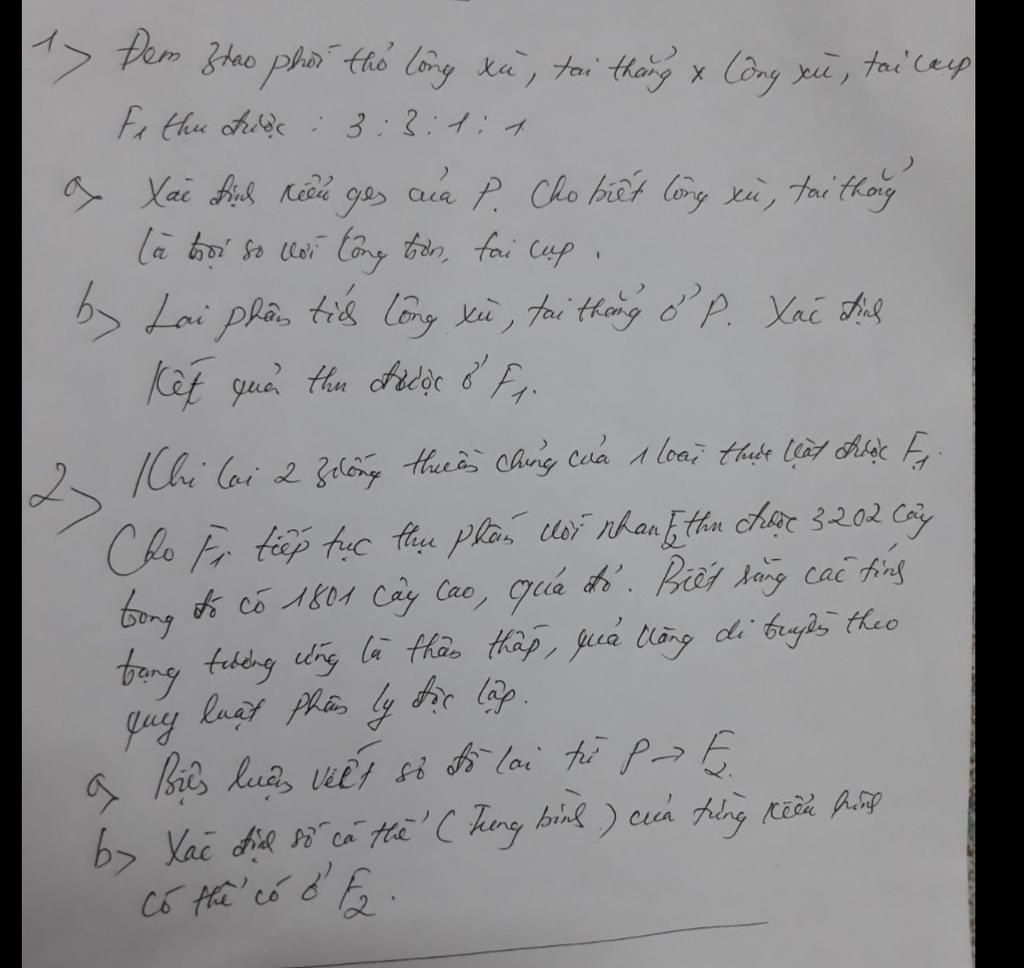 1> Đem giao phối thỏ lông xù, tai thẳng x lông xù, tai cụp
F1 thu được : 3 : 3 : 1 : 1
a> Xác định kiểu gen của P. Cho biết lông xù, tai thẳng
là trội so với lông trơn, tai cụp.
b> Lai phân tích lông xù, tai thẳng ở P. Xác định
kết quả thu được ở F1.
2> Khi lai 2 giống thuần chủng của 1 loài thực vật được F1.
Cho F1 tiếp tục thụ phấn với nhau F2 thu được 3202 cây
trong đó có 1801 cây cao, quả đỏ. Biết rằng các tính
trạng tương ứng là thân thấp, quả vàng di truyền theo
quy luật phân ly độc lập.
a> Biện luận viết sơ đồ lai từ P → F2.
b> Xác định số cá thể (trung bình) của từng kiểu hình
có thể có ở F2.